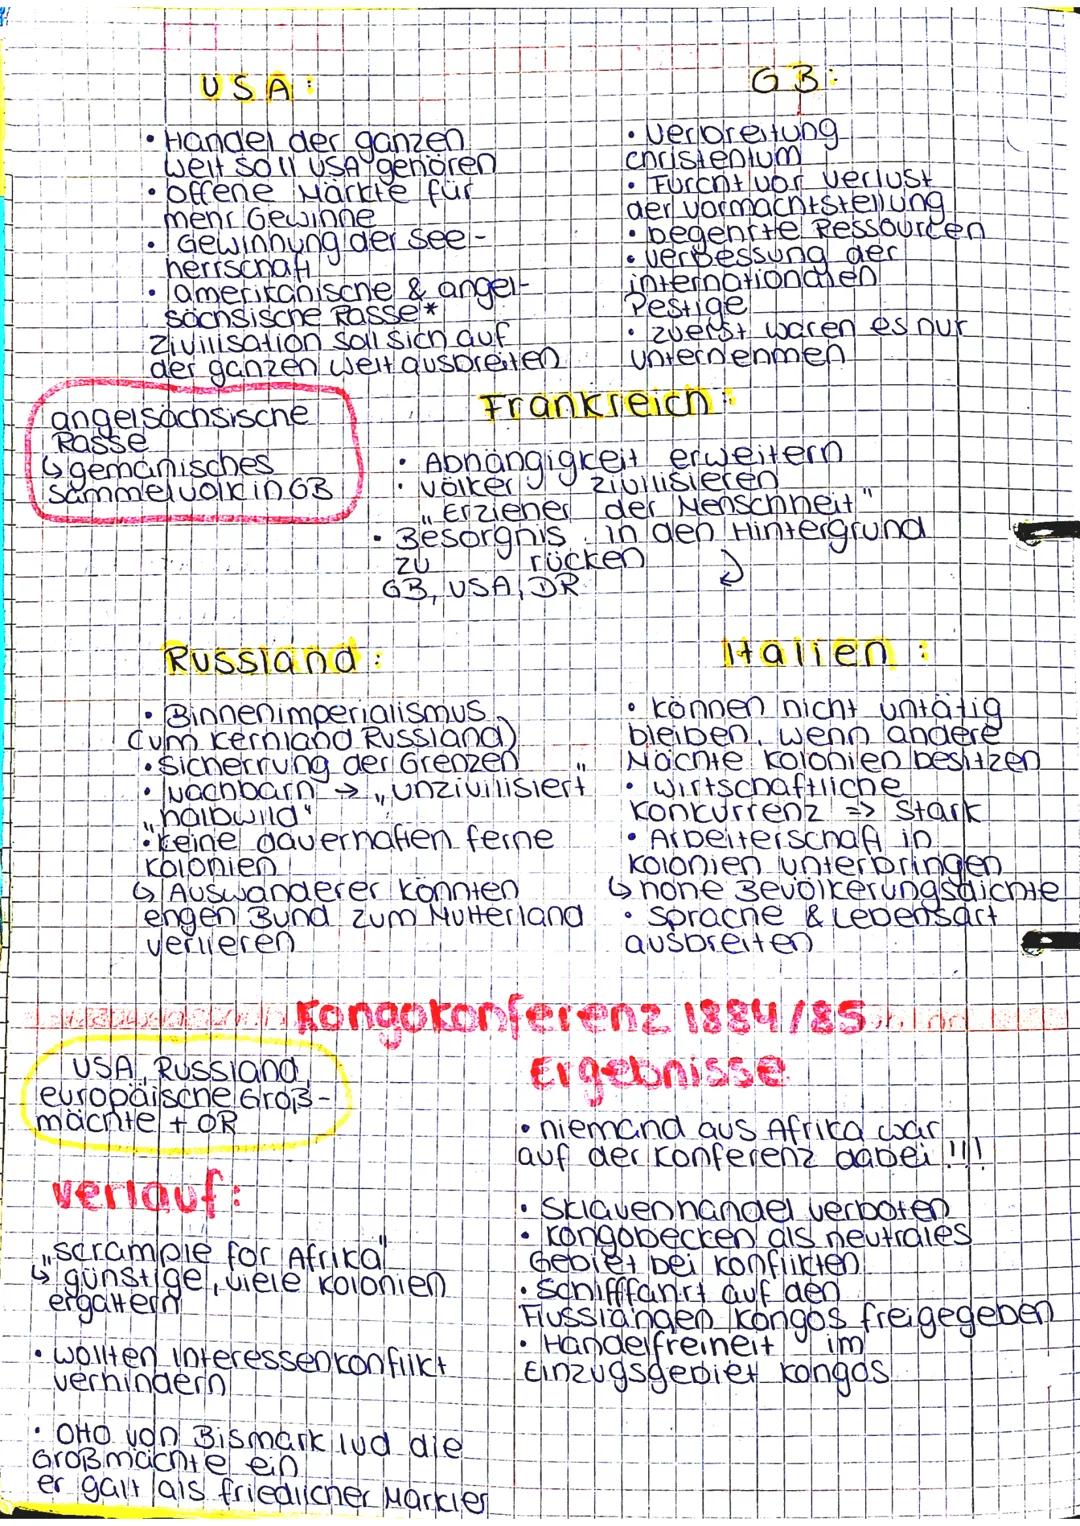 USA:
• Handel der ganzen
Welt soll USA gehören
• offene Märkte für
mehr Gewinne
• Gewinnung der See-
herrschaft
• amerikanische & angel-
sächsische Rasse*
Zivilisation soll sich auf
der ganzen Welt ausbreiten
GB:
• Verbreitung
Christentum
• Furcht vor Verlust
der Vormachtstellung
• begehrte Ressourcen
• Verbessung der
internationalen
Pestige
• zuerst waren es nur
Unternehmen
angelsächsische
Rasse
↳ gemanisches
Sammelvolk in GB
Frankreich:
• Abhängigkeit erweitern
• Völker zivilisieren
„Erzieher der Menschheit"
• Besorgnis in den Hintergrund
zu rücken
GB, USA, DR
Russland:
• Binnenimperialismus
(um Kernland Russland)
• Sicherrung der Grenzen
• Nachbarn → „unzivilisiert"
„halbwild"
• keine dauerhaften ferne
Kolonien
↳ Auswanderer könnten
engen Bund zum Mutterland
verlieren
Italien:
• können nicht untätig
bleiben, wenn andere
Mächte Kolonien besitzen
• wirtschaftliche
Konkurrenz => Stark
• Arbeiterschaft in
Kolonien unterbringen
↳ hohe Bevölkerungsdichte
• Sprache & Lebensart
ausbreiten
Kongokonferenz 1884/85
USA, Russland,
europäische Groß-
mächte + OR
Verlauf:
„scrample for Afrika"
↳ günstige, viele Kolonien
ergattern
• wollten Interessenkonflikt
verhindern
• Otto von Bismark lud die
Großmächte ein
er galt als friedlicher Markler
Ergebnisse
• niemand aus Afrika war
auf der Konferenz dabei!!!
• Sklavenhandel verboten
• Kongobecken als neutrales
Gebiet bei Konflikten
• Schifffahrt auf den
Flusslängen Kongos freigegeben
• Handelfreiheit im
Einzugsgebiet Kongos